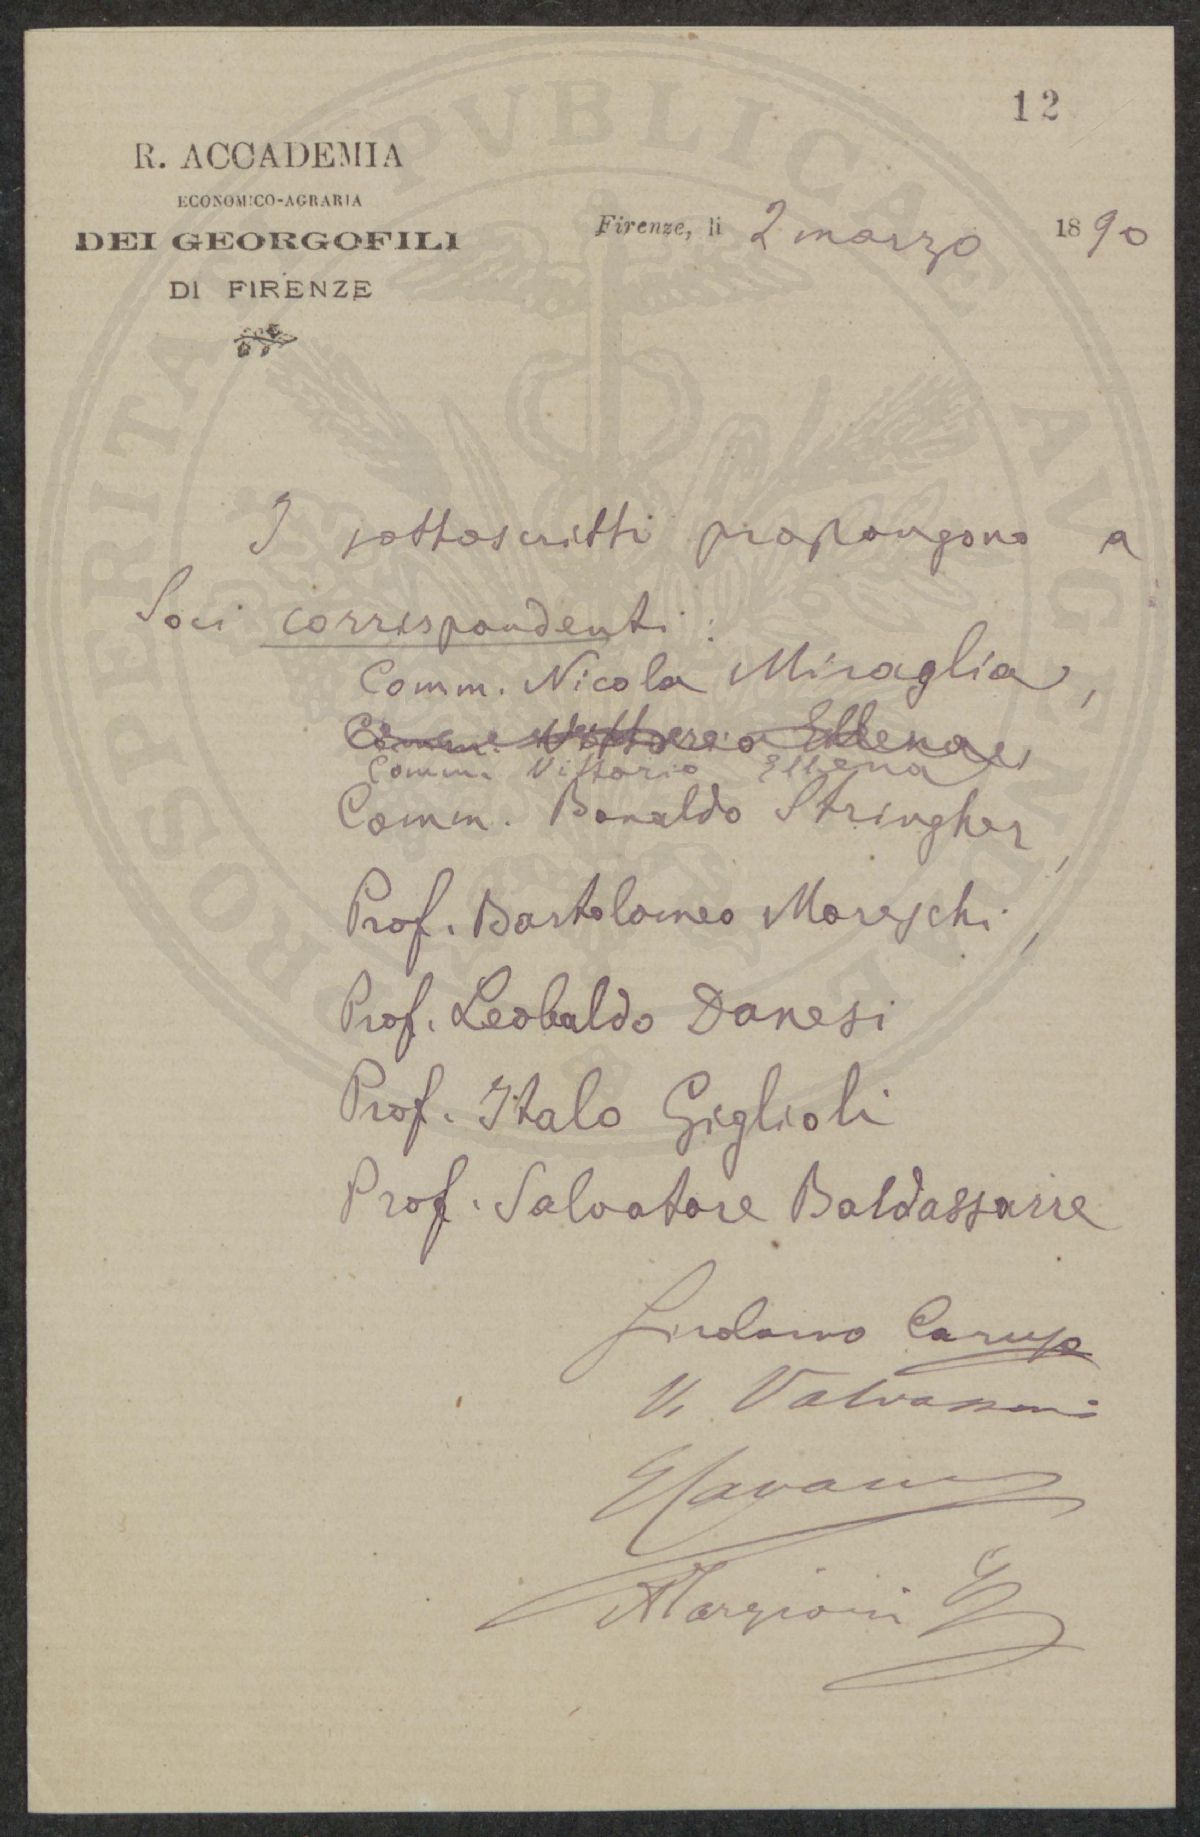 12
R. ACCADEMIA
ECONOMICO-AGRARIA
DEI GEORGOFILI
DI FIRENZE
Firenze, li 2 marzo 1890
I sottoscritti propongono a
Soci corrispondenti:
Comm. Nicola Miraglia,
Comm. Vittorio Ellena,
Comm. Vittorio Ellena
Comm. Bonaldo Stringher,
Prof. Bartolomeo Moreschi,
Prof. Leobaldo Danesi
Prof. Italo Giglioli
Prof. Salvatore Baldassarre
Girolamo Caruso
V. Valvassori
Targioni
PROSPERITATI PUBLICAE AUGENDAE